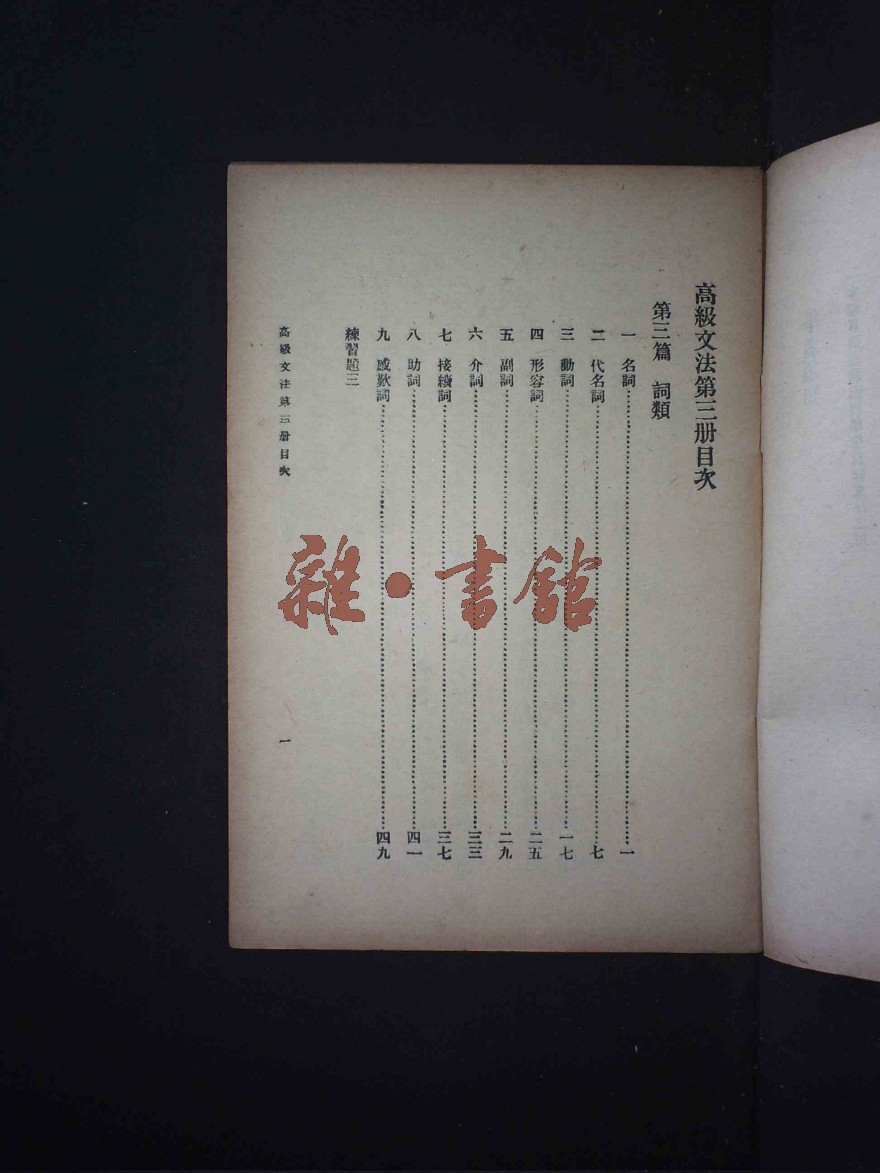 高級文法第三册目次
第三篇 詞類
一 名詞………一
二 代名詞………七
三 動詞………一七
四 形容詞………二五
五 副詞………二九
六 介詞………三三
七 接續詞………三七
八 助詞………四一
九 感歎詞………四九
練習題三
高級文法第三册目次
一
雜·書館